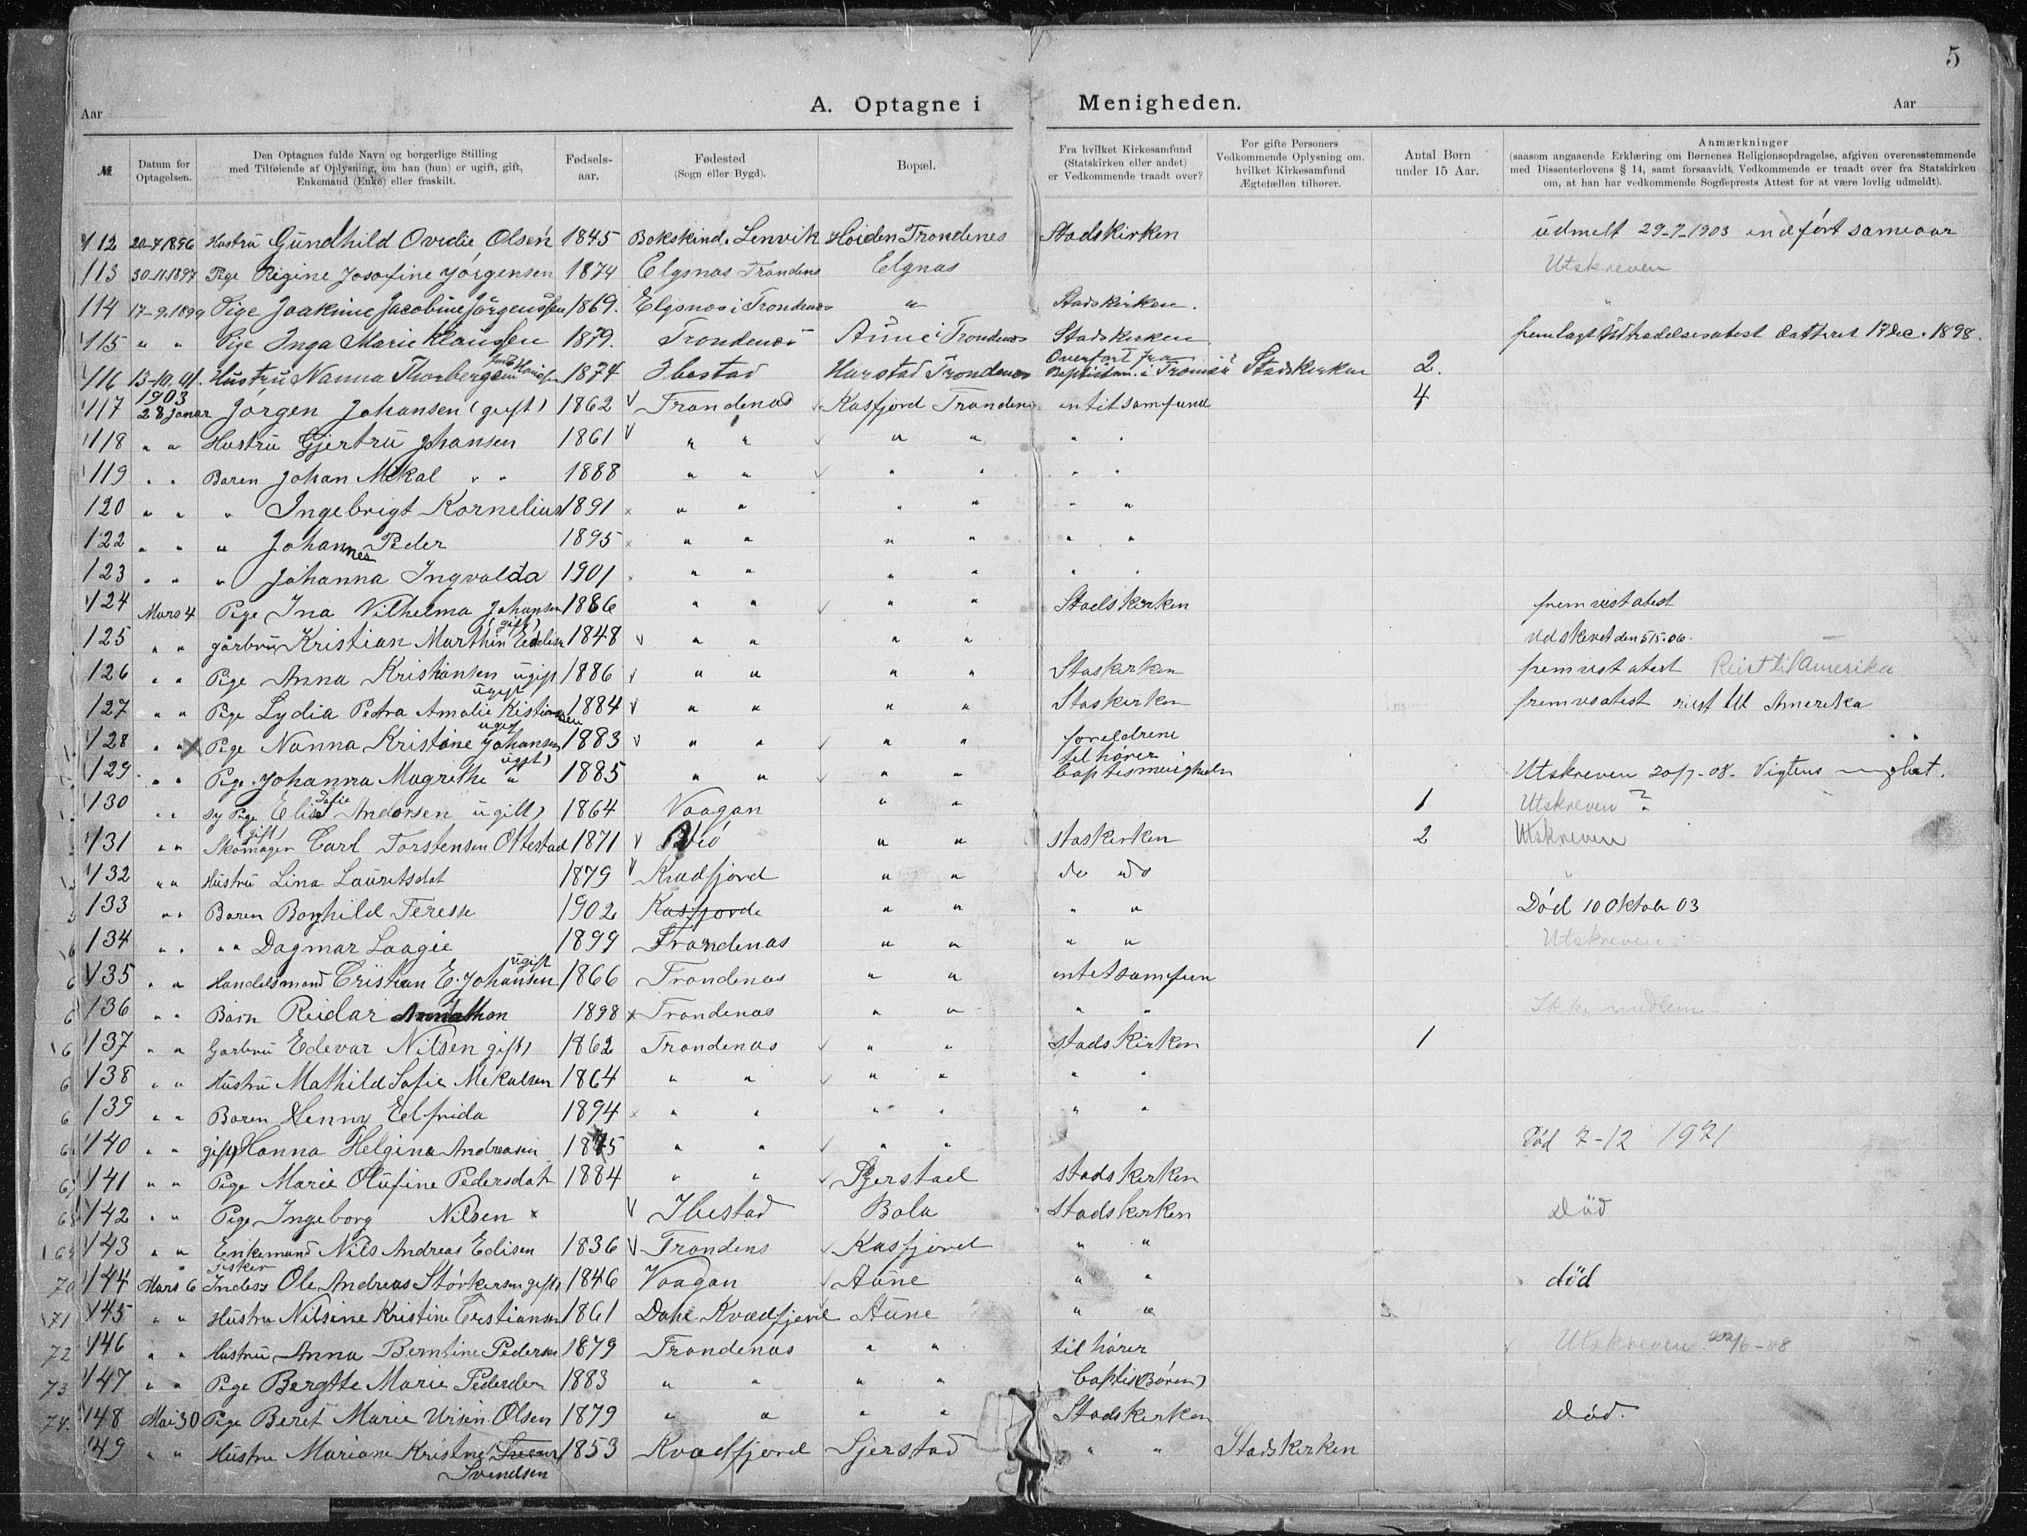 5
Aar
A. Optagne i Menigheden.
Aar
№
Datum for Optagelsen.
Den Optagnes fulde Navn og borgerlige Stilling med Tilføiende af Oplysning, om han (hun) er ugift, gift, Enkemand (Enke) eller fraskilt.
Fødsels-aar.
Fødested (Sogn eller Bygd).
Bopæl.
Fra hvilket Kirkesamfund (Statskirken eller andet) er Vedkommende traadt over?
For gifte Personers Vedkommende Oplysning om, hvilket Kirkesamfund Ægtefællen tilhører.
Antal Børn under 15 Aar.
Anmærkninger (saasom angaaende Erklæring om Børnenes Religionsopdragelse, afgiven overensstemmende med Dissenterlovens § 14, samt forsaavidt Vedkommende er traadt over fra Statskirken om, at han har vedkommende Sognepræsts Attest for at være lovlig udmeldt).
112 20-7 1896 Hustrü Gündhild Ovedie Olsen 1845 Bokskind. Lenvik Hoiden Trondenes Stadskirken üdmelt 29-7-1903 endført sameaar
113 30.11.1897 Pige Rigine Josofine Jørgensen 1874 Elgsnas Trondens Elgnas Utskreven
114 17-9.1899 Pige Joakime Jacobine Jörgenssen 1869. Elgsnæs i Trondenæs " Stadskirken. "
115 " " Pige Inga Marie Klaussen 1879. Trondenæs Aüne i Trondenæs Stadskirken fremlagt Udtrædelsesatest datteret 17 dec. 1898.
116 13-10. 01. Hustrü Nanna Thorbergsen 1874 Ibestad Harstad Trondenæs Overført fra Baptistm. i Tromsø Stadskirken 2.
117 1903 28 Janar Jørgen Johansen (gift) 1862 V Trondenas Kasfjord Tronden intit samfund 4
118 " " Hustrü Gjertrü Johansen 1861 V " " " " " "
119 " " Baren Johan Mekal " " 1888 " " " " " "
120 " " " Ingebrigt Kornelius 1891 x " " " " " "
122 " " " Johannes Peder 1895 x " " " " " "
123 " " " Johanna Ingvalda 1901 x " " " " " "
124 Mars 4 Pige Ina Vilhelma Johansen 1886 " " " " Stadskirken fremvist atest
125 " " gårbrü Kristian Marthin Edelisen (gift) 1848 V " " " " udskevet den 5/5-06.
126 " " Pige Anna Kristiansen ügift 1886 V " " " " Staskirken fremvist atest Reist til Amerika
127 " " Pige Lydia Petra Amalie Kistiansen ügift 1884 V " " " " Staskirken fremvsatest riest til Amerika
128 " " x Pige Nanna Kristine Johansen ugift 1883 V " " " " foreldrene " "
129 " " Pige Johanna Magrethe " ugift) 1885 " " " " tilhører baptesmenigheden Utskreven 20/7-08. Vigtens
130 " " Sy Pige Elise Sofie Andersen ugift) 1864 Vaagan " " 1 Utskreven ?
131 " " Skomager Carl Torstensen Ottestad (gift) 1871 V " " staskirken 2 Utskreven
132 " " Hustrü Lina Lauritsdat 1879 V Kvadfjord " " do do "
133 " " Baren Borghild Terese 1902 Kasfjorde " " " " Død 10 Oktob 03
134 " " " " Dagmar Laagie 1899 Trondenas " " " " Utskreven
135 " " Handelsmand Cristian E. Johansen ügift 1866 Trondenas " " entetsamfun
136 " " Barn Reidar 1898 x Trondenas " " " " Ikke medlem
137 " " Garbrü Edevar Nilsen gift) 1862 Trondenas " " stadskirken 1
138 " " Hüstrü Mathild Sofie Mekalsen 1864 " " " " " "
139 " " Baren Henny Eelfrida 1894 x " " " " " "
140 " " gift) Hanna Helgina Andreasen 1875 " " " " Død 7-12 1971
141 " " Pige Marie Olüfine Pedersdatr 1884 " " Sjerstad stadskirken
142 " " Pige Ingeborg Nilsen x V Ibestad Bola Stadskerken död
143 " " Enkemand Nils Andreas Edisen 1836 V Trondens Kasfjord " "
70 144 Mars 6 Fisker Inders Ole Andreas Størkersen gift) 1846 Vaagan Aüne " " död
71 145 " " Hüstrü Nilsine Kristine Cristiansen 1861 Dale Kvædfjord Aüne " "
72 146 " " Hustrü Anna Berntine Pedersen 1879 Trondenas " " til hører Utskreven 22/6-08
73 147 " " Pige Bergitte Marie Pedersen 1883 " " " " baptis(Børen)
74. 148 Mai 30 Pige Beret Marie Ursin Olsen 1879 " " " " Stadskerken död.
149 " " Hüstrü Mariane Kristne Svendsen 1853 Kvædfjord Sjerstad " " Stadskerken